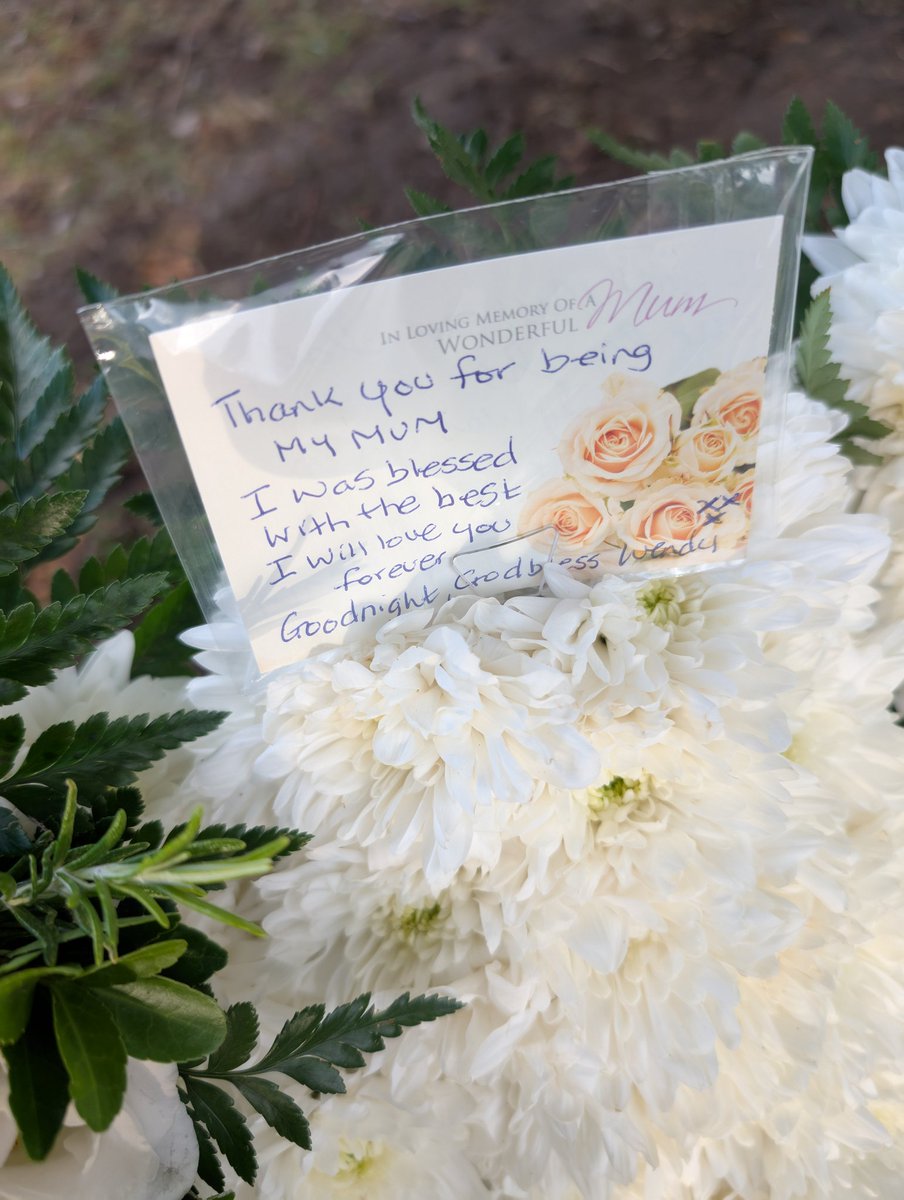 In Loving Memory Of A
Wonderful Mum
Thank you for being
My MUM
I was blessed
with the best
I will love you
forever
Goodnight, Godbless Wendy
xx
x